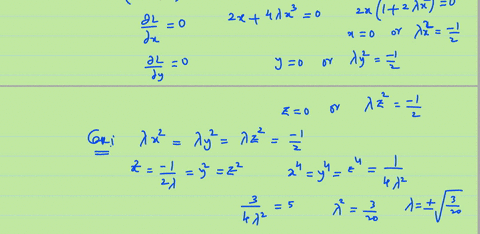 ∂L/∂x = 0    2x + 4λx³ = 0    2x(1 + 2λx²) = 0
x = 0 or λx² = -1/2
∂L/∂y = 0    y = 0 or λy² = -1/2
z = 0 or λz² = -1/2
λx² = λy² = λz² = -1/2
x² = -1/2λ = y² = z²    x⁴ = y⁴ = z⁴ = 1/4λ²
3/4λ² = 5    λ² = 3/20    λ = ±√(3/20)